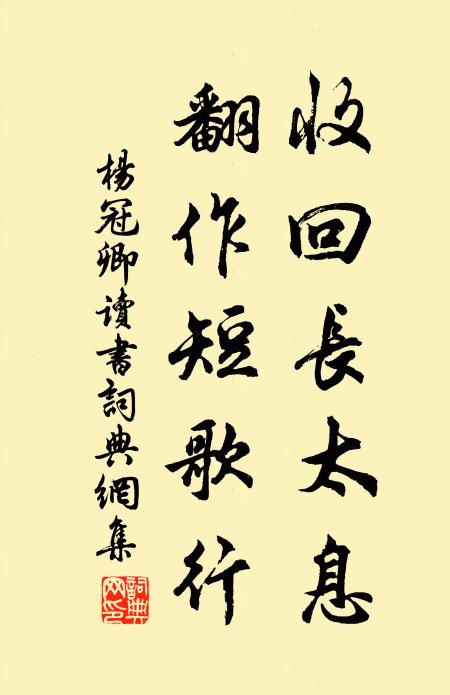 收回長太息
翻作短歌行
楊冠卿讀書詞典網集
詞典网印